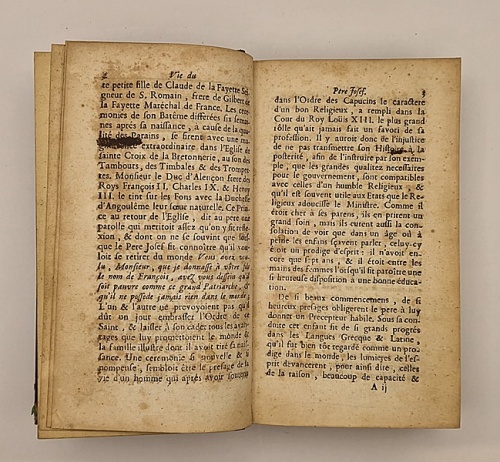 4 Vie du
te petite fille de Claude de la Fayette Sei
gneur de S. Romain, frere de Gilbert de
la Fayette Maréchal de France. Les cere
monies de son Batême differées six semai
nes aprés sa naissance, à cause de la qua
lité des Parains, se firent avec une ma
extraordinaire dans l'Eglise de
sainte Croix de la Bretonnerie, au son des
Tambours, des Timbales & des Trompet
tes. Monsieur le Duc d'Alençon frere des
Roys François II, Charles IX. & Henry
III. le tint sur les Fons avec la Duchesse
d'Angoulême leur sœur naturelle. Ce Prin
ce au retour de l'Eglise, dit au pere une
parolle qui meritoit assez qu'on y fit refle
xion, & dont on ne se souvint que lors
que le Pere Josef fit connoître qu'il vou
loit se retirer du monde Vous avez vou
lu, Monsieur, que je donnasse à vôtre fils
le nom de François, avez dessein qu'il
soit pauvre comme ce grand Patriarche, &
qu'il ne possede jamais rien dans le monde
L'un & l'autre ne prevoyoient pas qu'il
dût un jour embrasser l'Ordre de ce
Saint, & laisser à son cadet tous les avan
tages que luy promettoient le monde &
la famille illustre dont il avoit tiré sa nais
sance. Une ceremonie si nouvelle & si
pompeuse, sembloit être le presage de la
vie d'un homme qui aprés avoir soutenu
Pere Josef. 3
dans l'Ordre des Capucins le caractere
d'un bon Religieux, a rempli dans la
Cour du Roy Loüis XIII. le plus grand
rôlle qu'ait jamais fait un savori de sa
profession. Il y auroit donc de l'injustice
de ne pas transmettre son Histoire à la
posterité, afin de l'instruire par son exem-
ple, que les grandes qualitez necessaires
pour le gouvernement, sont compatibles
avec celles d'un humble Religieux, &
qu'il est souvent utile aux Etats que le Re-
ligieux adoucisse le Ministre. Comme il
étoit cher à ses parens, ils en prirent un
grand soin, mais ils eurent aussi la con-
solation de voir que dans un âge où à
peine les enfans sçavent parler, celuy-cy
étoit un prodige d'esprit: il n'avoit en-
core que sept ans, & il étoit entre les
mains des femmes lorsqu'il fit paroître une
si heureuse disposition à une bonne éduca-
tion.
De si beaux commencemens, de si
heureux presages obligerent le pere à luy
donner un Precepteur habile. Sous sa con-
duite cet enfant fit de si grands progrés
dans les Langues Grecque & Latine,
qu'il fut bien tôt regardé comme un pro-
dige dans le monde, les lumieres de l'es-
prit devancerent, pour ainsi dire, celles
de la raison, beaucoup de capacité &
A ij